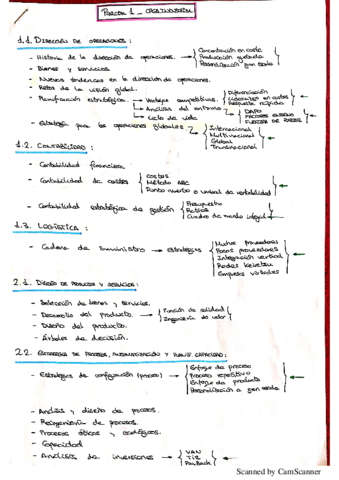 PARCIAL 1 - ORGANIZACIÓN
1.1. DIRECCIÓN DE OPERACIONES:
- Historia de la dirección de operaciones. → Concentración en coste
Producción ajustada
Personalización gran escala
- Bienes y servicios.
- Nuevas tendencias en la dirección de operaciones.
- Retos de la visión global.
- Planificación estratégica. → Ventajas competitivas. → Diferenciación
Liderazgo en costes
Respuesta rápida
→ Análisis del entorno → DAFO
FACTORES EXTERNO
FUERZAS DE PORTER
→ Ciclo de vida
- Estrategia para las operaciones globales → Internacional
Multinacional
Global
Transnacional
1.2. CONTABILIDAD:
- Contabilidad financiera.
- Contabilidad de costes → Costes
Método ABC
Punto muerto o umbral de rentabilidad
- Contabilidad estratégica de gestión → Presupuesto
Ratios
Cuadro de mando integral
1.3. LOGÍSTICA:
- Cadena de suministro → Estrategias → Muchos proveedores
Pocos proveedores
Integración vertical
Redes Keiretsu
Empresas virtuales
2.1. DISEÑO DE PRODUCTO Y SERVICIOS:
- Selección de bienes y servicios.
- Desarrollo del producto. → Función de calidad
Ingeniería de valor
- Diseño del producto.
- Árboles de decisión.
2.2. ESTRATEGIA DE PROCESO, AUTOMATIZACIÓN Y PLANIF. CAPACIDAD:
- Estrategias de configuración (proceso) → Enfoque de proceso
Proceso repetitivo
Enfoque de producto
Personalización a gran escala
- Análisis y diseño de procesos.
- Reingeniería de procesos.
- Procesos éticos y ecológicos.
- Capacidad
- Análisis de inversiones → VAN
TIR
PayBack
Scanned by CamScanner